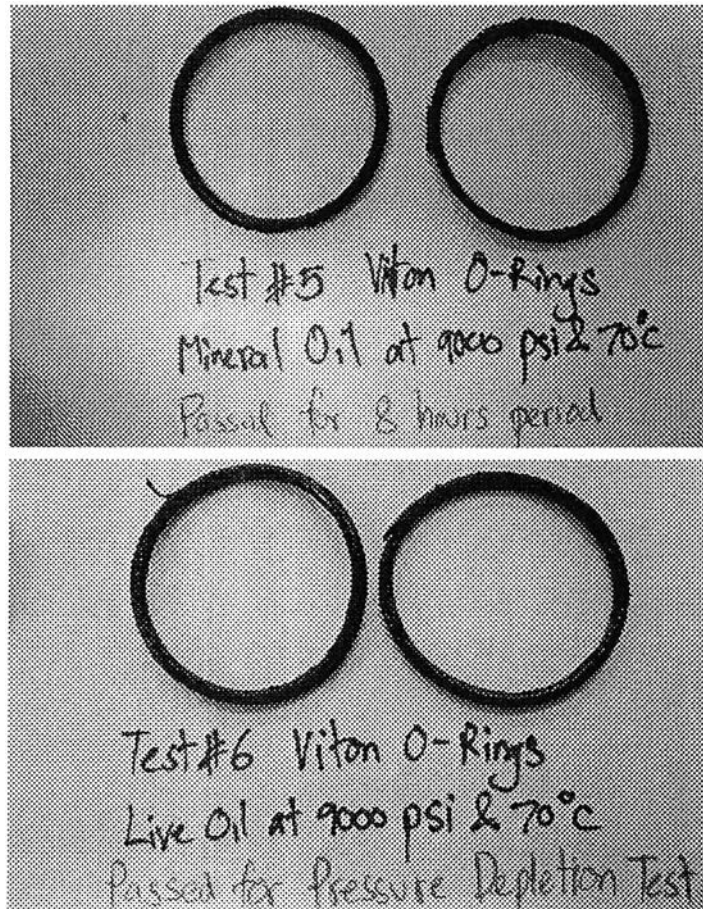 Test #5 Viton O-Rings
Mineral Oil at 9000 psi & 70°C
Passed for 8 hours period
Test #6 Viton O-Rings
Live Oil at 9000 psi & 70°C
Passed for Pressure Depletion Test